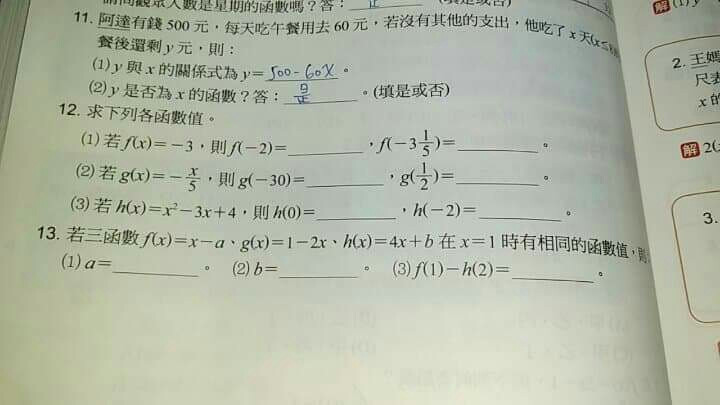 請問觀眾人數是星期的函數嗎？答：
11. 阿達有錢 500 元，每天吃午餐用去 60 元，若沒有其他的支出，他吃了 x 天(x≤
餐後還剩 y 元，則：
(1) y 與 x 的關係式為 y= 500-60X 。
(2) y 是否為 x 的函數？答： 是 。(填是或否)
12. 求下列各函數值。
(1) 若 f(x)=-3，則 f(-2)=________，f(-3 1/5)=________。
(2) 若 g(x)=-x/5，則 g(-30)=________，g(1/2)=________。
(3) 若 h(x)=x²-3x+4，則 h(0)=________，h(-2)=________。
13. 若三函數 f(x)=x-a、g(x)=1-2x、h(x)=4x+b 在 x=1 時有相同的函數值，則
(1) a=________。 (2) b=________。 (3) f(1)-h(2)=________。
解 (1) y
2. 王媽
尺表
x 的
解 2(
3.